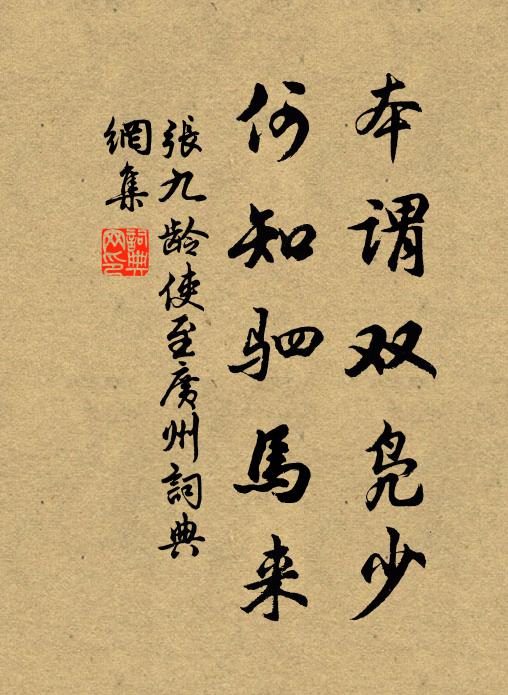 本谓双凫少
何知驷馬来
張九龄使至廣州詞典
網集
詞典
网印